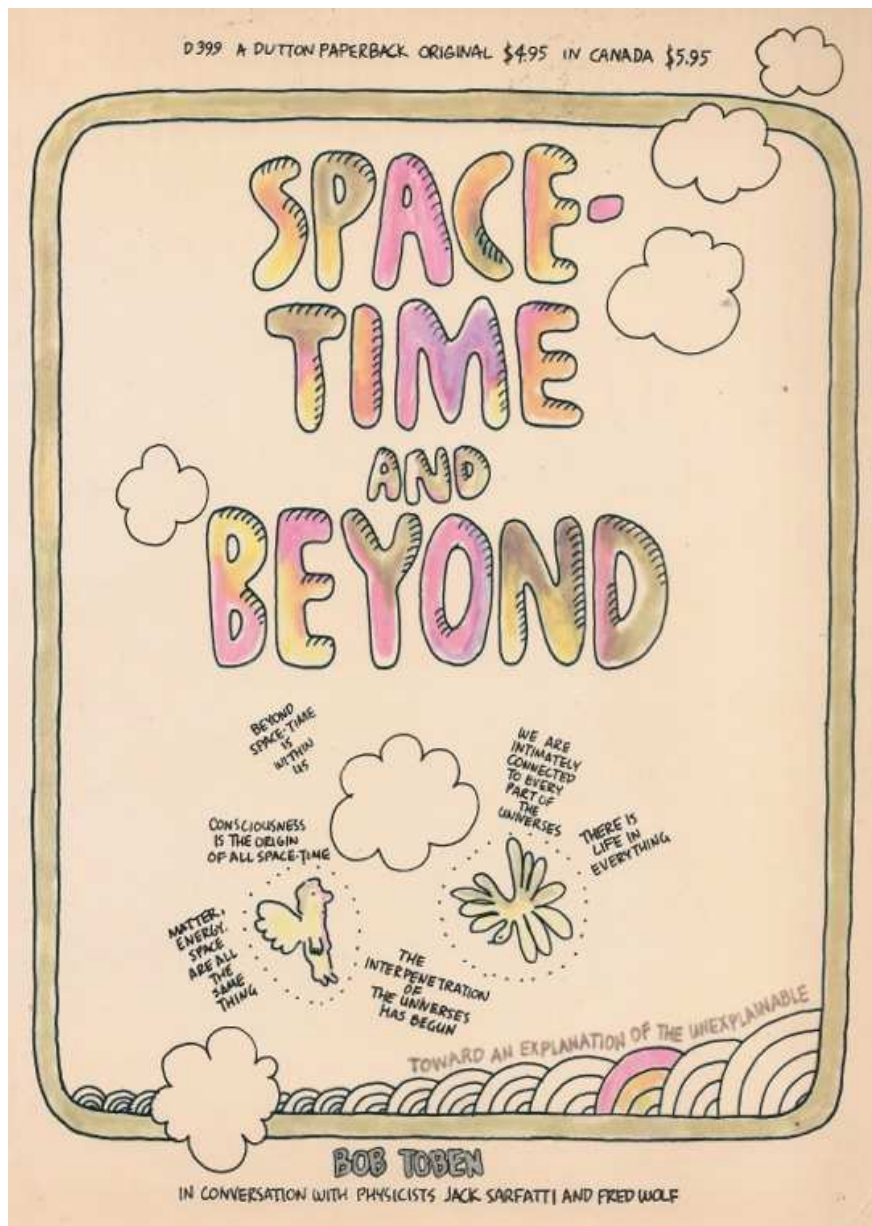 D399 A DUTTON PAPERBACK ORIGINAL $4.95 IN CANADA $5.95
SPACE-
TIME
AND
BEYOND
BEYOND
SPACE-TIME
IS
WITHIN
US
WE ARE
INTIMATELY
CONNECTED
TO EVERY
PART OF
THE
UNIVERSES
THERE IS
LIFE IN
EVERYTHING
CONSCIOUSNESS
IS THE ORIGIN
OF ALL SPACE-TIME
MATTER,
ENERGY,
SPACE
ARE ALL
THE
SAME
THING
THE
INTERPENETRATION
OF
THE UNIVERSES
HAS BEGUN
TOWARD AN EXPLANATION OF THE UNEXPLAINABLE
BOB TOBEN
IN CONVERSATION WITH PHYSICISTS JACK SARFATTI AND FRED WOLF